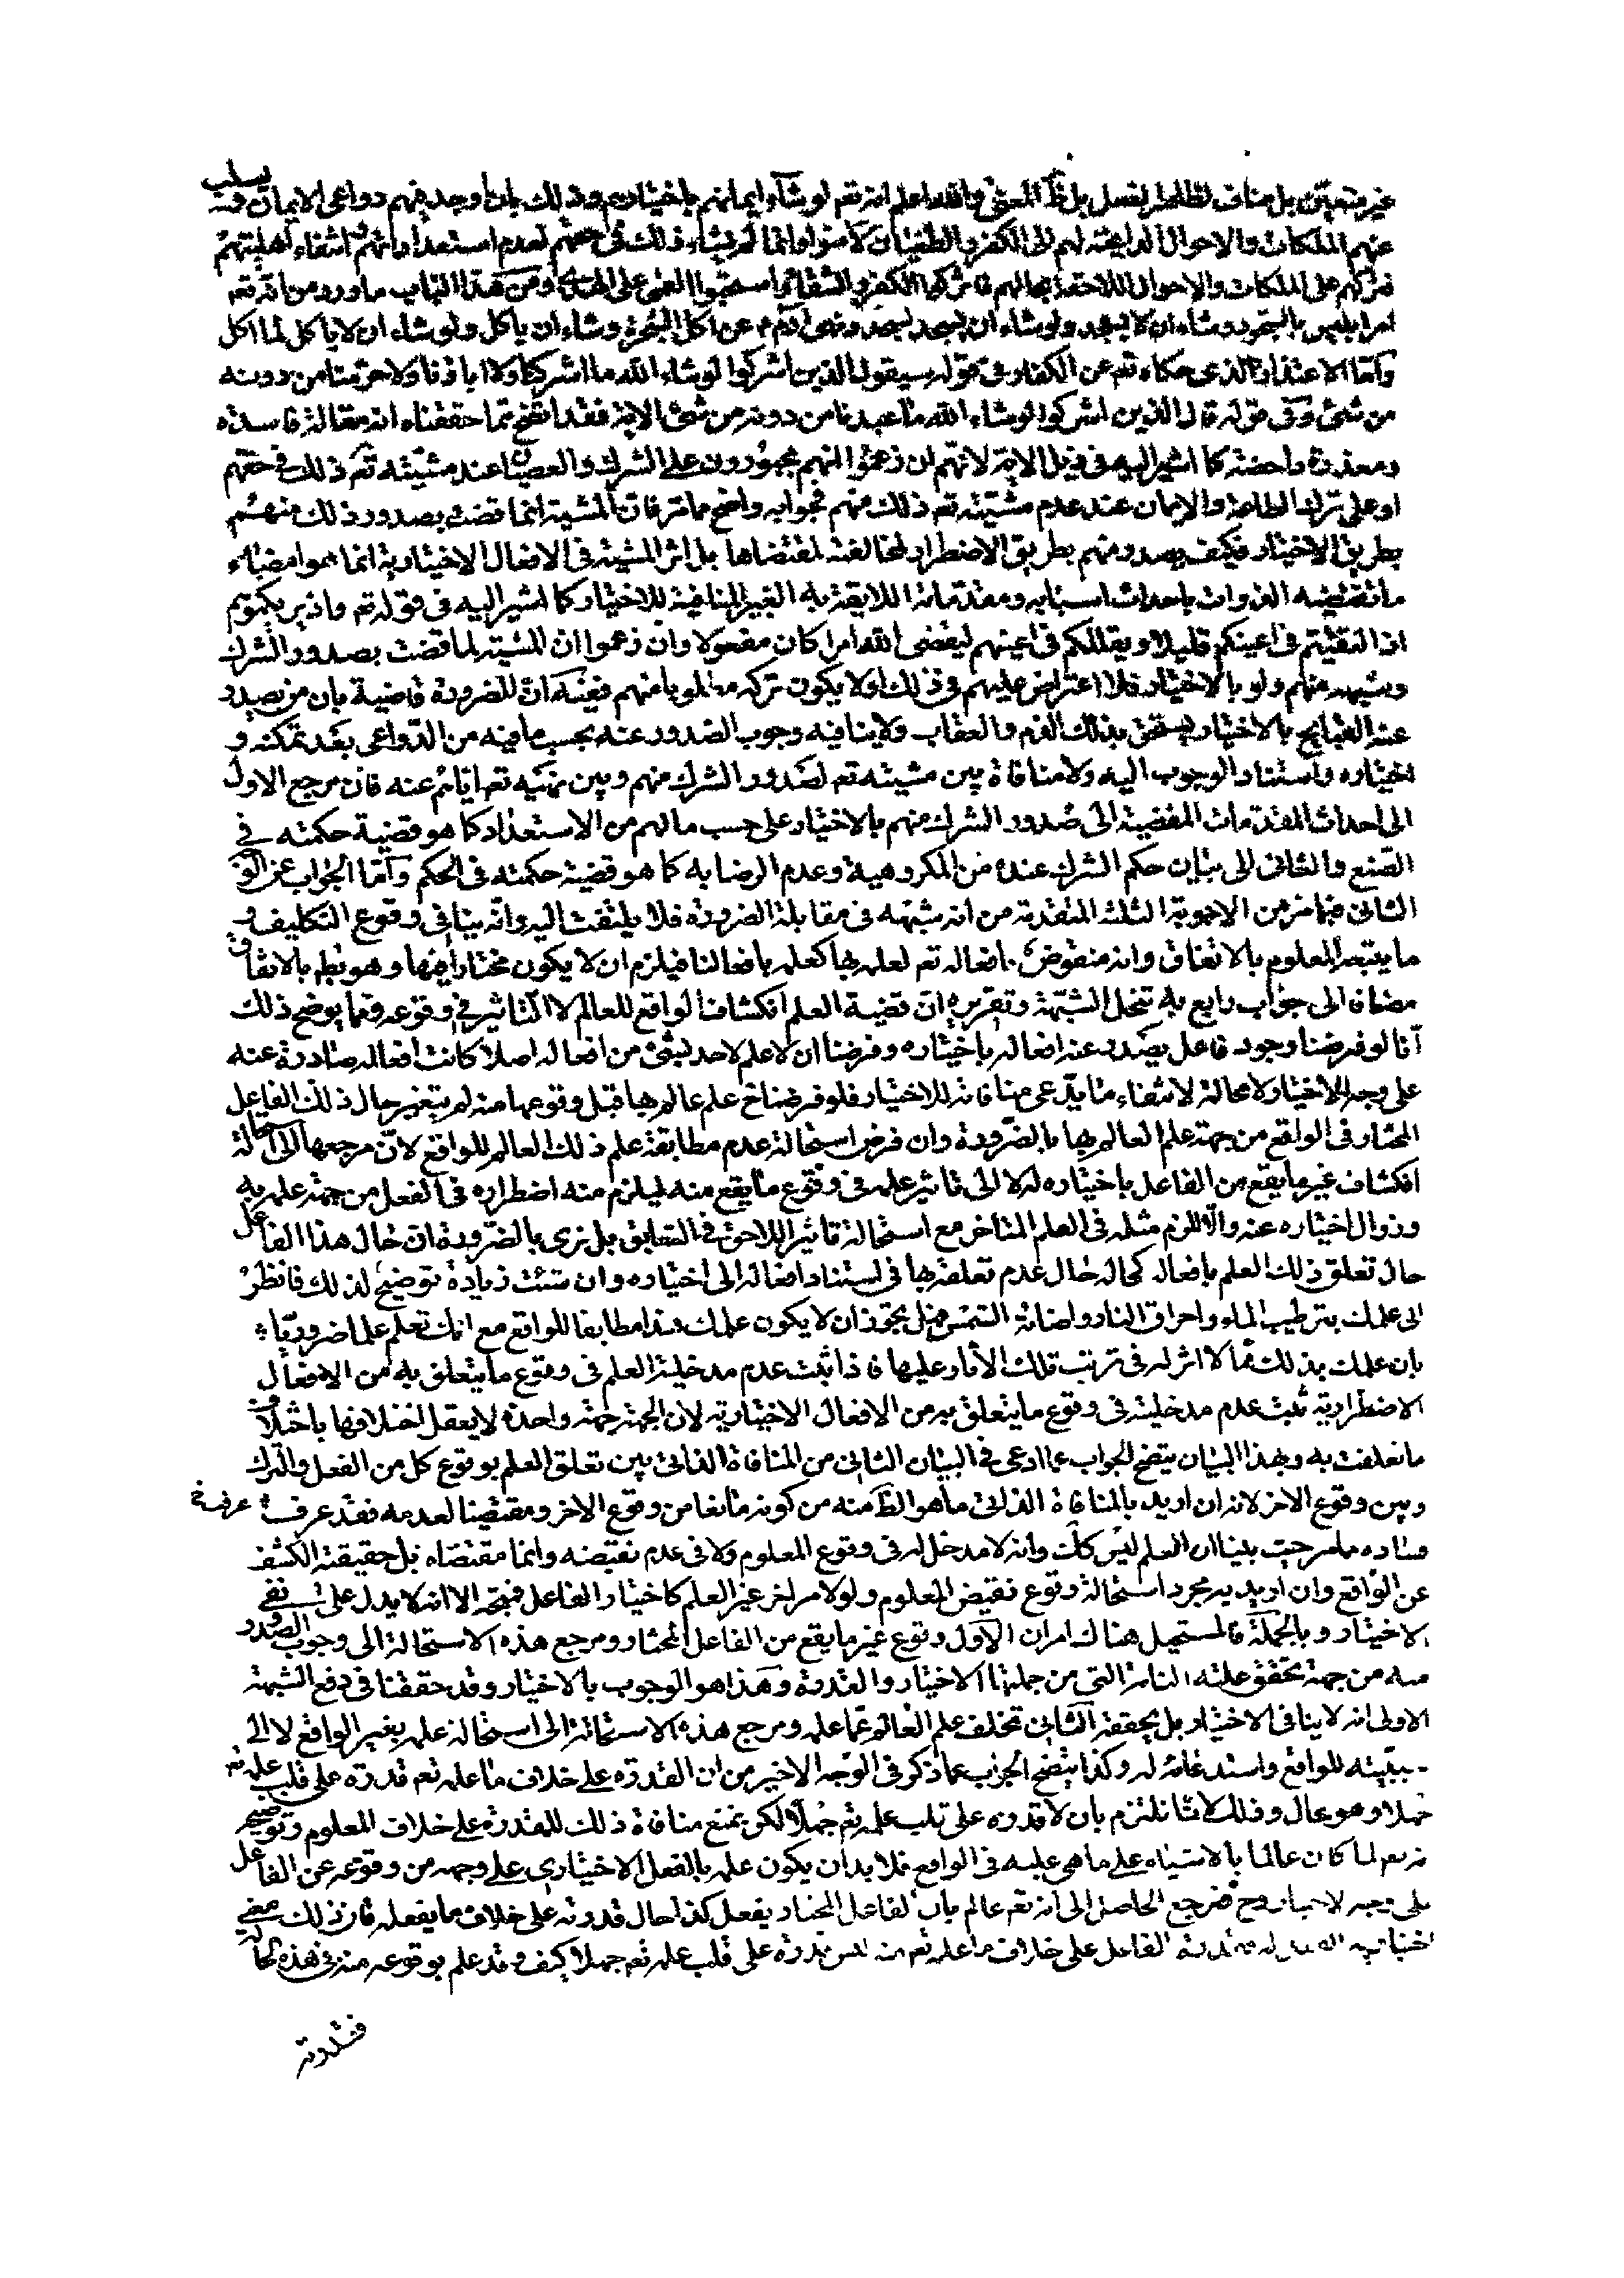 غير متعين بل مناف لظاهر لفصل بل المعنى والله اعلم انه تعم لو شاء ايمانهم باختيارهم وذلك بان اوجد فيهم دواعى الايمان وسلب
عنهم الملكات والاحوال الداعية لهم الى الكفر والطغيان لامنوا وانما لم يشاء ذلك فى حقهم لعدم استعداداتهم انتفاء اهليتهم
فتركهم على الملكات والاحوال اللاحقة بحالهم فاشركوا الكفر والشقاق واستحبوا العمى على الهدى ومن هذا الباب ما ورد من انه تعم
امر ابليس بالسجود وشاء ان لا يسجد ولو شاء ان يسجد لسجد ونهى ادم م عن اكل الشجرة وشاء ان ياكل ولو شاء ان لا ياكل لما اكل
واما الاعتذار الذى حكاه تعم عن الكفار فى قوله سيقول الذين اشركوا لو شاء الله ما اشركنا ولا اباؤنا ولا حرمنا من دونه
من شئ وفى قوله قال الذين اشركوا لو شاء الله ما عبدنا من دونه من شئ الاية فقد اتضح مما حققناه انه مقالة فاسدة
ومعذرة داحضة كما اشير اليه فى ذيل الاية لانهم ان زعموا انهم مجبورون على الشرك والعصيان عند مشيته تعم ذلك فى حقهم
او على ترك الطاعة والايمان عند عدم مشيته تعم ذلك منهم فجوابه واضح مما مر فان المشية انما قضت بصدور ذلك منهم
بطريق الاختيار فكيف يصدر منهم بطريق الاضطرار لمخالفته لمقتضاها بل اثر المشية فى الافعال الاختيارية انما هو امضاء
ما تقتضيه الذوات باحداث اسبابه ومقدماته اللايقة به الغير المنافية للاختيار كما اشير اليه فى قوله تعم واذ يريكموهم
اذ التقيتم فى اعينكم قليلا ويقللكم فى اعينهم ليقضى الله امرا كان مفعولا وان زعموا ان المشية لما قضت بصدور الشرك
وشبهه منهم ولو بالاختيار فلا اعتراض عليهم فى ذلك اولا يكون تركه مطلوبا منهم ففيه ان الضرورة قاضية بان من يصدر
عنه القبايح بالاختيار يستحق بذلك الذم والعقاب ولا ينافيه وجوب الصدور عنه بحسب ما فيه من الدواعى بعد تمكنه و
اختياره واستناد الوجوب اليه ولا منافاة بين مشيته تعم لصدور الشرك منهم وبين نهيه تعم اياهم عنه فان مرجع الاول
الى احداث المقدمات المفضية الى صدور الشرك منهم بالاختيار على حسب ما لهم من الاستعداد كما هو قضية حكمته فى
الصنع والثانى الى بيان حكم الشرك عنده من المكروهية وعدم الرضا به كما هو قضية حكمته فى الحكم واما الجواب عن الوجه
الثانى فبما مر من الاجوبة الثلثة المتقدمة من انه شبهة فى مقابلة الضرورة فلا يلتفت اليه وانه ينافى وقوع التكليف و
ما يتبعه المعلوم بالاتفاق وانه منقوض بافعاله تعم لعلمه بها كعلمه بافعالنا فيلزم ان لا يكون مختارا فيها وهو بط بالاتفاق
مضافا الى جواب رابع به تنحل الشبهة وتقريره ان قضية العلم انكشاف الواقع للعالم لا التاثير فى وقوعه ومما يوضح ذلك
انا لو فرضنا وجود فاعل يصدر عنه افعاله باختياره وفرضنا ان لا علم لاحد بشئ من افعاله اصلا كانت افعاله صادرة عنه
على وجه الاختيار لا محالة لانتفاء ما يدعى منافاته للاختيار فلو فرضنا ح علم عالم بها قبل وقوعها منه لم يتغير حال ذلك الفاعل
المختار فى الواقع من جهة علم العالم بها بالضرورة وان فرض استحالة عدم مطابقة علم ذلك العالم للواقع لان مرجعها الى استحالة
انكشاف غير ما يقع من الفاعل باختياره له لا الى تاثير علمه فى وقوع ما يقع منه ليلزم منه اضطراره فى الفعل من جهة علمه به
وزوال اختياره عنه والا للزم مثله فى العلم المتاخر مع استحالة تاثير اللاحق فى السابق بل نرى بالضرورة ان حال هذا الفاعل
حال تعلق ذلك العلم بافعاله كحاله حال عدم تعلقه بها فى استناد افعاله الى اختياره وان شئت زيادة توضيح لذلك فانظر
الى علمك بترطيب الماء واحراق النار واضائة الشمس فهل يجوز ان لا يكون علمك هذا مطابقا للواقع مع انك تعلم علما ضروريا
بان علمك بذلك مما لا اثر له فى ترتب تلك الاثار عليها فاذا ثبت عدم مدخلية العلم فى وقوع ما يتعلق به من الافعال
الاضطرارية ثبت عدم مدخليته فى وقوع ما يتعلق به من الافعال الاختيارية لان الجهة جهة واحدة لا يعقل اختلافها باختلاف
ما تعلقت به وبهذا البيان يتضح الجواب عما ادعى فى البيان الثانى من المنافاة الذاتى بين تعلق العلم بوقوع كل من الفعل والترك
وبين وقوع الاخر لانه ان اريد بالمنافاة الذاتى ما هو الظ منه من كونه مانعا من وقوع الاخر ومقتضيا لعدمه فقد عرفت
فساده مما مر حيث بينا ان العلم ليس كك وانه لا مدخل له فى وقوع المعلوم ولا فى عدم نقيضه وانما مقتضاه بل حقيقته الكشف
عن الواقع وان اريد به مجرد استحالة وقوع نقيض المعلوم ولو لامر اخر غير العلم كاختيار الفاعل فمتجه الا انه لا يدل على نفى
الاختيار وبالجملة فالمستحيل هناك امران الاول وقوع غير ما يقع من الفاعل المختار ومرجع هذه الاستحالة الى وجوب الصدور
منه من جهة تحقق علته التامة التى من جملتها الاختيار والقدرة وهذا هو الوجوب بالاختيار وقد حققنا فى دفع الشبهة
الاولى انه لا ينافى الاختيار بل يحققه الثانى تخلف علم العالم عما علمه ومرجع هذه الاستحالة الى استحالة علمه بغير الواقع لا الى
سببيته للواقع واستدعائه له وكذا يتضح الجواب عما ذكر فى الوجه الاخير من ان القدرة على خلاف ما علمه تعم قدرة على قلب علمه تعم
جهلا وهو محال وذلك لانا نلتزم بان لا قدرة على قلب علمه تعم جهلا لكن نمنع منافاة ذلك للقدرة على خلاف المعلوم وتوضيحه
انه تعم لما كان عالما بالاشياء على ما هى عليه فى الواقع فلا بد ان يكون علمه بالفعل الاختيارى على وجهه من وقوعه عن الفاعل
على وجه الاختيار وح فمرجع الحاصل الى انه تعم عالم بان الفاعل المختار يفعل كذا حال قدرته على خلاف ما يفعله فان ذلك معنى
الفاعل على خلاف ما علمه تعم منه ليس قدرة على قلب علمه تعم جهلا كيف وقد علم بوقوعه منه فى هذه الحالة
فقدرته